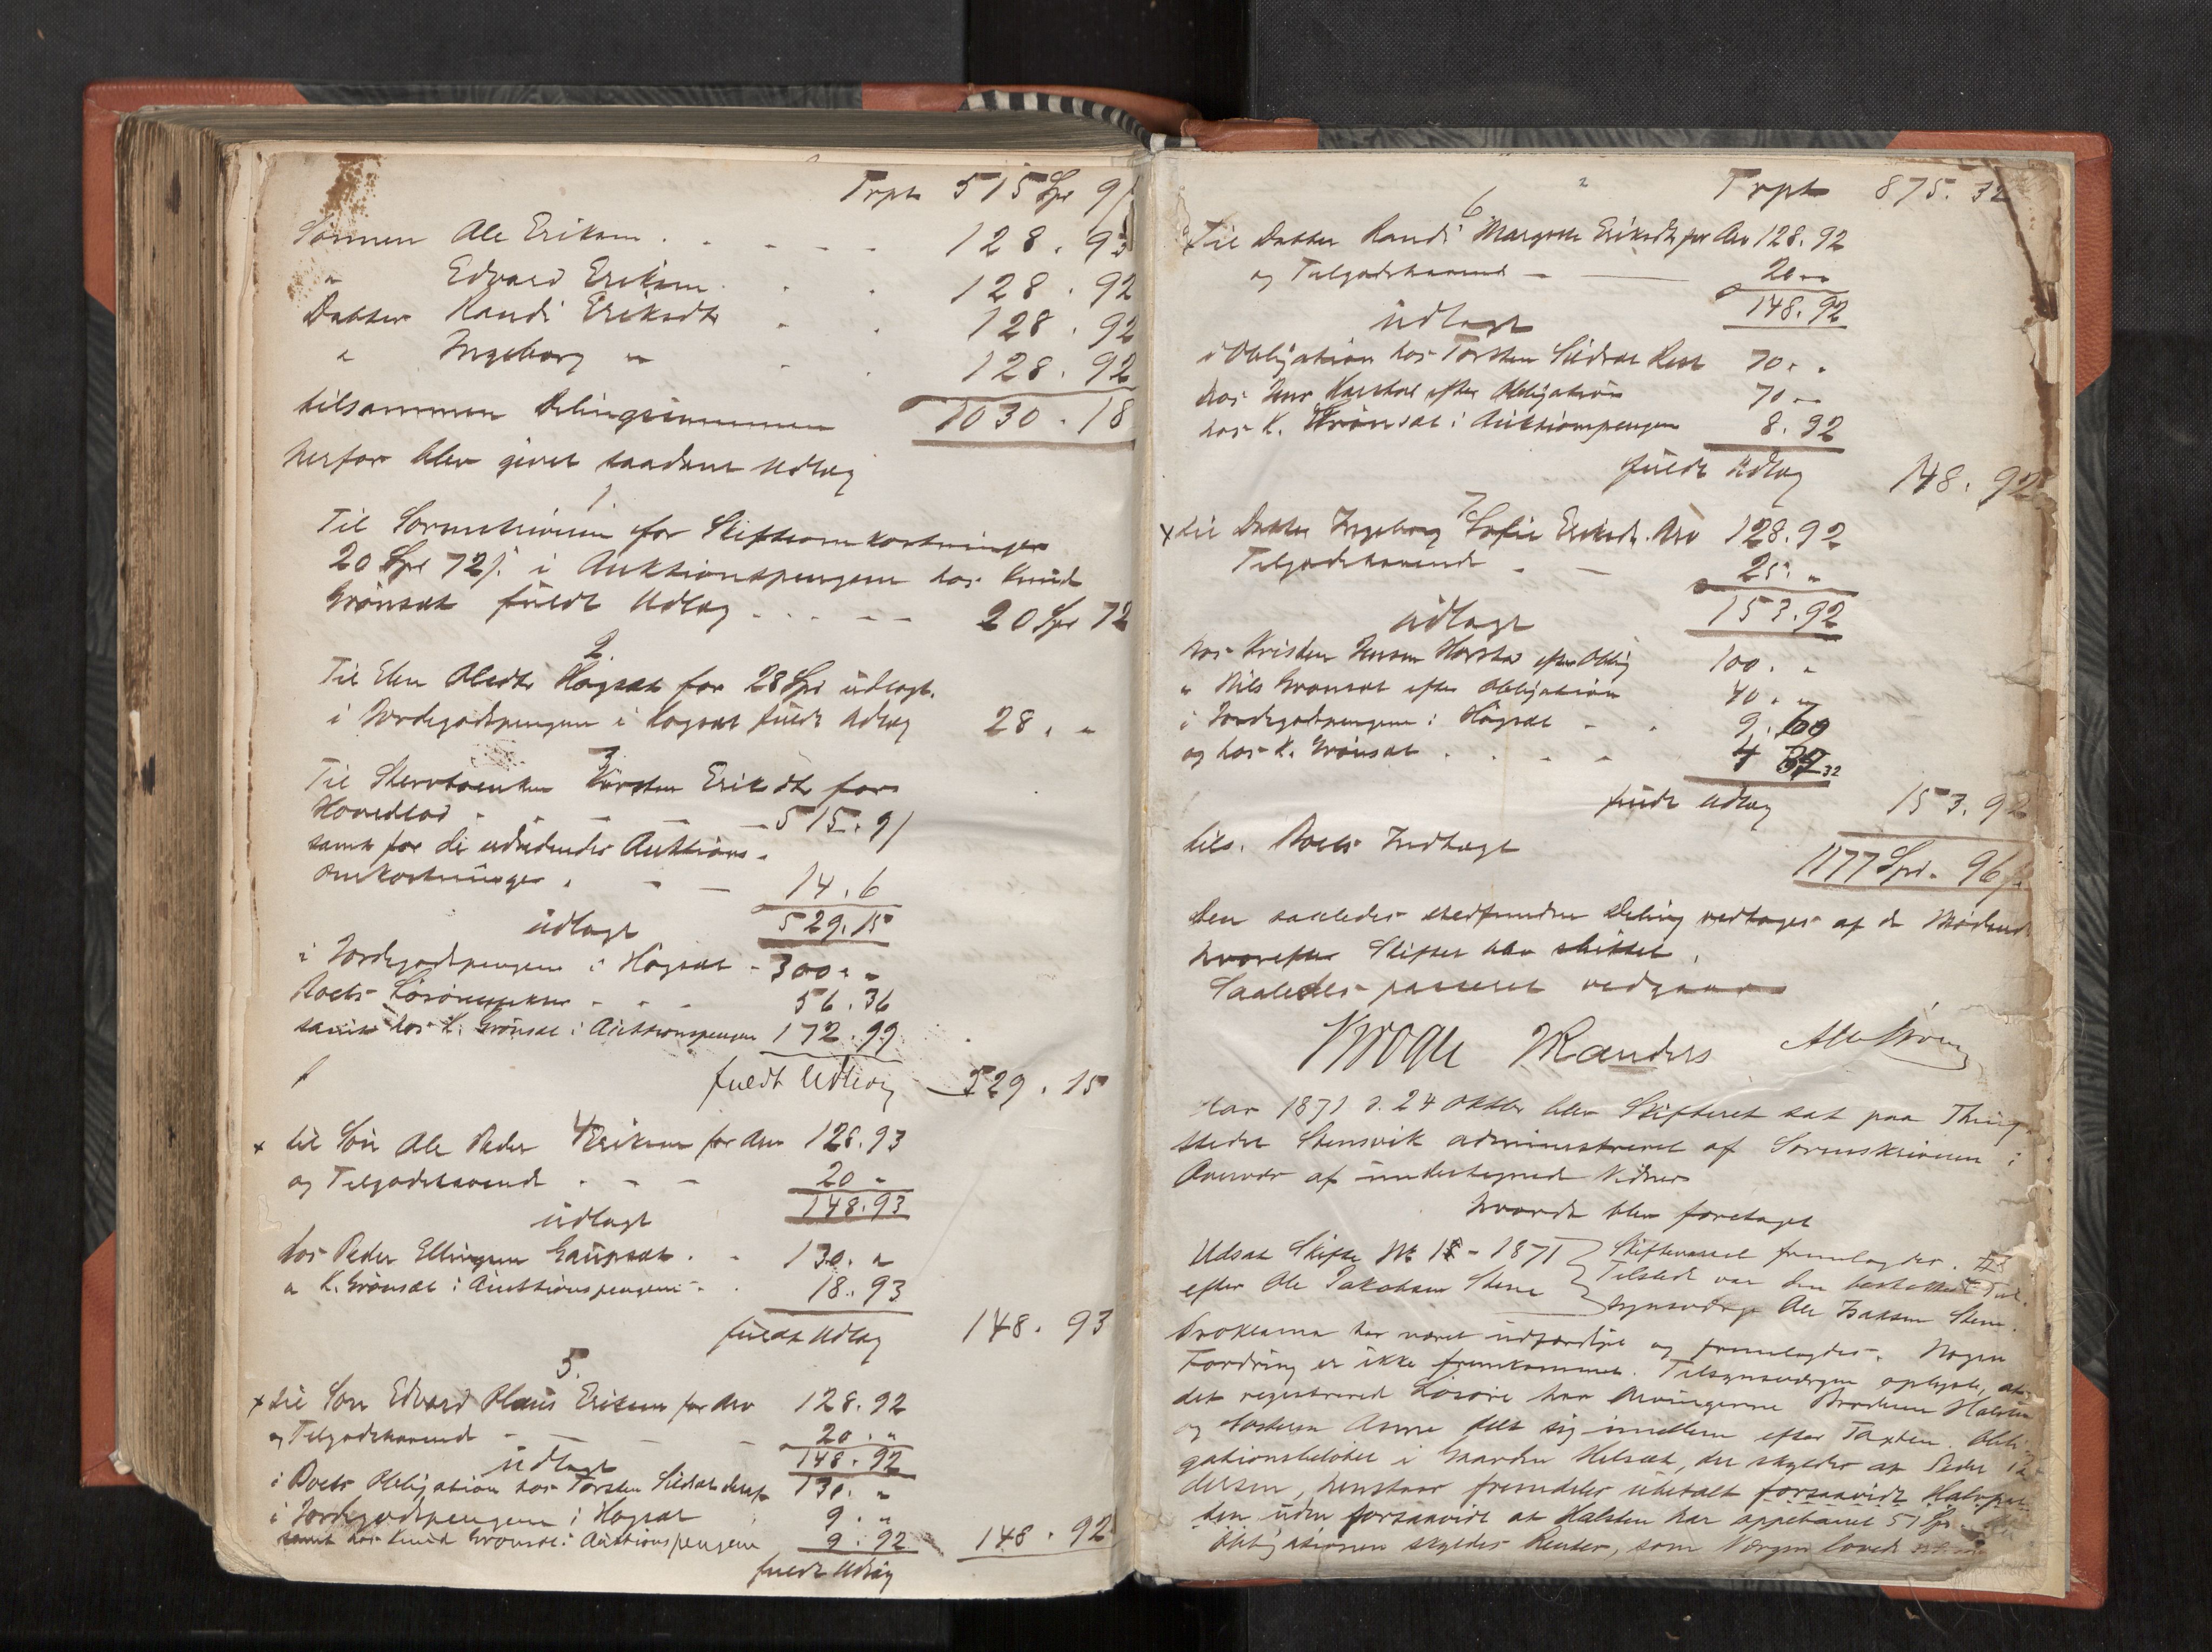 Trpt 515 Spd 91
Sönnen Ole Eriksen . . . . . 128 . 93
" Edvard Eriksen . . . 128 . 92
Datter Randi Eriksdtr . . 128 . 92
" Ingeborg " . . 128 . 92
tilsammen Delingssummen 1030 . 18
herfor blev givet saadant Udlæg
1.
Til Sorenskriveren for Skifteomkostninger
20 Spd 72 ß. i Auktionspengene hos Knud
Grönsæt fuldt Udlæg . . . . 20 Spd 72
2.
Til Elen Olsdtr Hogsæt for 28 Spd udlagt
i Jordegodspengene i Hogsæt fuldt Udlæg 28 . "
3.
Til Sterboenken Kirsten Eriksdtr for
Hovedlod . . . 515 . 91
samt for de udredende Auktions-
omkostninger . . . 14 . 6
529 . 15
udlagt
i Jordegodspengene i Hogsæt - 300 . "
Boets Lösöreeffekter . . . 56 . 36
samt hos K. Grönsæt i Auktionspengene 172 . 99
fuldt Udlæg 529 . 15
4.
x til Sön Ole Peder Eriksen for Arv 128 . 93
og Tilgodehavende . . . 20 "
udlagt 148 . 93
hos Peder Ellingsen Gaupset . . 130 . "
" K. Grönsæt i Auktionspengene . 18 . 93
fuldt Udlæg 148 . 93
5.
x til Sön Edvard Olaus Eriksen for Arv 128 . 92
og Tilgodehavende . . . 20 . "
udlagt 148 . 92
i Boets Obligation hos Torsten Sildset 130 . "
i Jordegodspengene i Hogsæt 9 . "
samt hos Knud Grönsæt i Auktionspengene 9 . 92 148 . 92
fuldt Udlæg
Trpt 875 . 32
6
Til Datter Randi Margrete Eriksdtr for Arv 128 . 92
og Tilgodehavende - 20 "
udlagt 148 . 92
i Obligation hos Torsten Sildset Rest 70 . "
hos efter Obligation 70 "
hos K. Grönsæt i Auktionspengene 8 . 92
fuldt Udlæg 148 . 92
7.
x til Datter Ingeborg Sofie Eriksdtr. Arv 128 . 92
Tilgodehavende - - 25 . "
udlagt 153 . 92
hos Kristen Jensen Harstad efter Oblig 100 . "
" Nils Grönsæt efter Obligation 40 . "
i Jordegodspengene i Hogsæt - . 9 . 60
og hos K. Grönsæt . . . . 4 32
fuldt Udlæg 153 . 92
tils. Boets Indtægt 1177 Spd. 96 ß.
Den saaledes stedfundne Deling vedtages af de Mödende
hvorefter Skiftet blev sluttet.
Saaledes passeret vedgaaes
Krogh Randers
Aar 1871 d. 24 Oktbr blev Skifteret sat paa Thing-
stedet Stensvik administreret af Sorenskriveren i
Overvær af undertegnede Vidner
hvorda blev foretaget
Udsat Skifte No 18 - 1871 Skiftevæsnet fremlagdes.
efter Ole Jakobsen Stene Tilstede var den beskikkede Til-
synsværge Ole Isaksen Stene.
Proklama har været udfærdiget og fremlagdes. Nogen
Fordring er ikke fremkommet. Tilsynsværgen oplyste, at
det registrerede Lösöre har Arvingerne Broderen Halsten
og Söstren Anne delt sig imellem efter Taxten. Obli-
gationsbelöbet i Gaarden Helsæt, der skyldes af Peder
dersen, henstaar fremdeles ubetalt forsaavidt Halvpar-
ten uden forsaavidt at Halsten har oppebaaret 51 Spd.
Obligationen skyldes Renter, som Værgen lovede